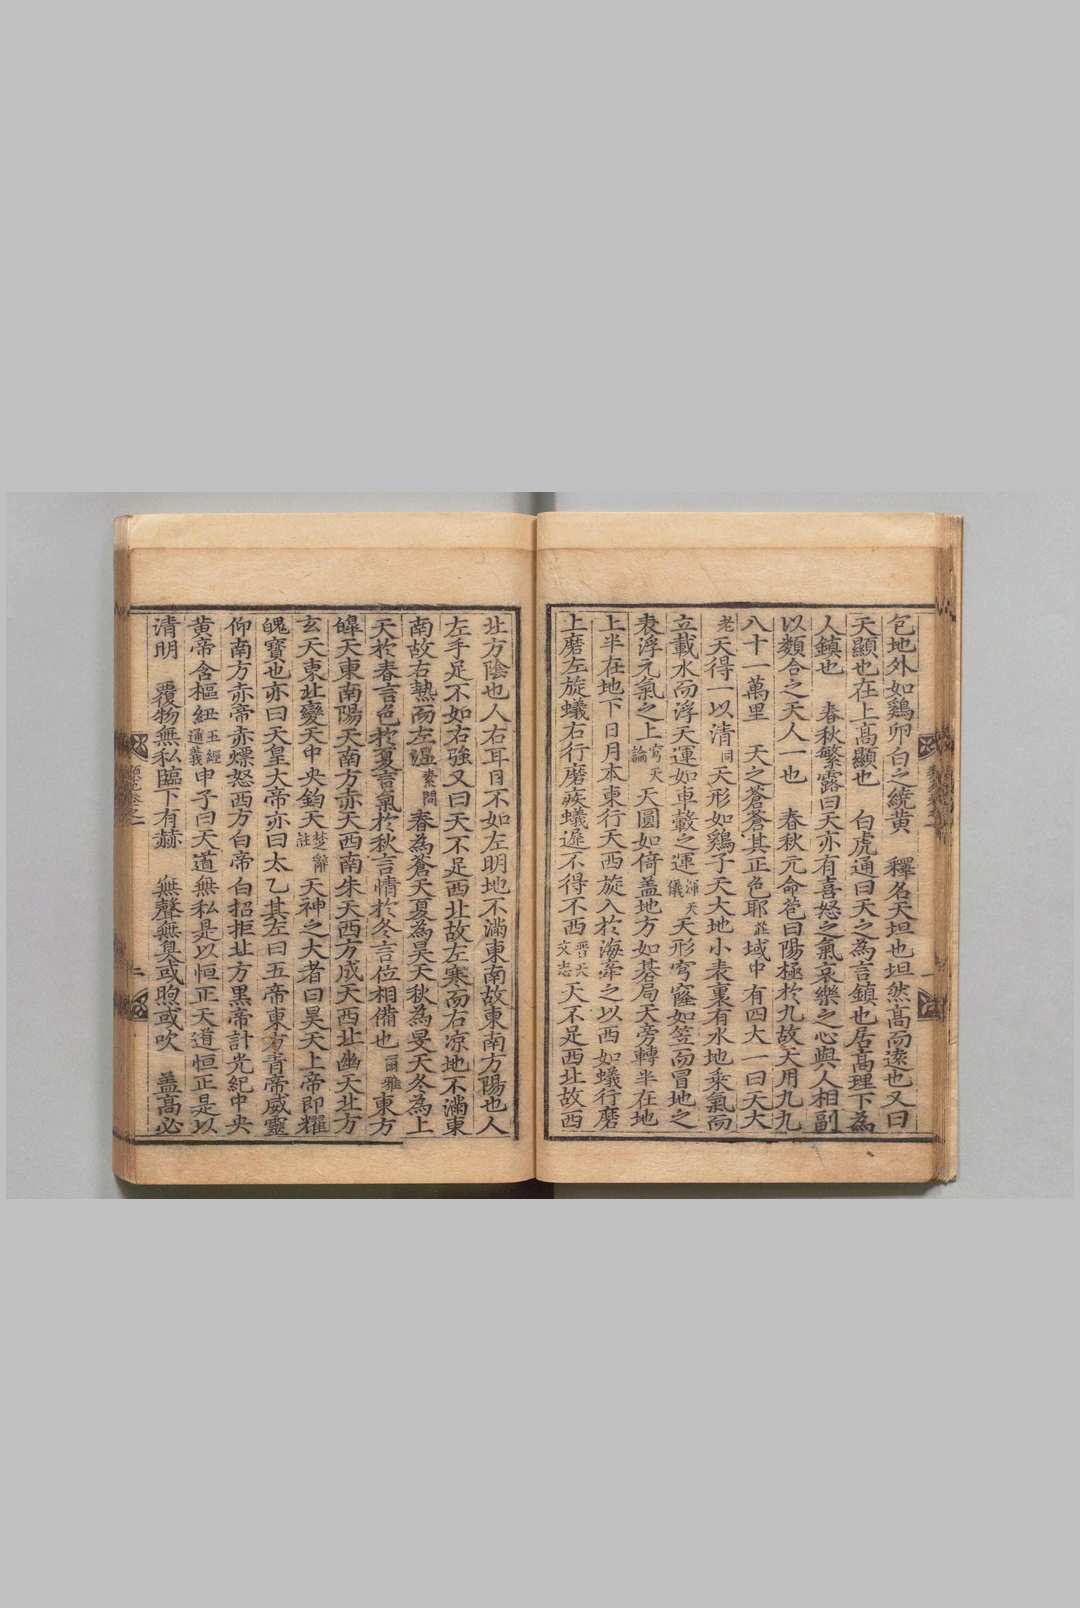 包地外如鷄卵白之繞黃　釋名天坦也坦然高而遠也又曰
天顯也在上高顯也　白虎通曰天之為言鎮也居高理下為
人鎮也　春秋繁露曰天亦有喜怒之氣哀樂之心與人相副
以類合之天人一也　春秋元命苞曰陽極於九故天用九九
八十一萬里　天之蒼蒼其正色耶莊域中有四大一曰天大
老天得一以清同天形如鷄子天大地小表裏有水地乘氣而
立載水而浮天運如車轂之運渾天儀天形穹窿如笠而冒地之
表浮元氣之上穹天論天圓如倚盖地方如棊局天旁轉半在地
上半在地下日月本東行天西旋入於海牽之以西如蟻行磨
上磨左旋蟻右行磨疾蟻遲不得不西晋天文志天不足西北故西
北方陰也人右耳目不如左明地不滿東南故東南方陽也人
左手足不如右強又曰天不足西北故左寒而右凉地不滿東
南故右熱而左溫素問春為蒼天夏為昊天秋為旻天冬為上
天於春言色於夏言氣於秋言情於冬言位相備也爾雅東方
皥天東南陽天南方赤天西南朱天西方成天西北幽天北方
玄天東北變天中央鈞天楚辭註天神之大者曰昊天上帝即耀
魄寶也亦曰天皇大帝亦曰太乙其左曰五帝東方青帝威靈
仰南方赤帝赤熛怒西方白帝白招拒北方黑帝計光紀中央
黃帝含樞紐五經通義申子曰天道無私是以恒正天道恒正是以
清明　覆物無私臨下有赫　無聲無臭或喣或吹　盖高必